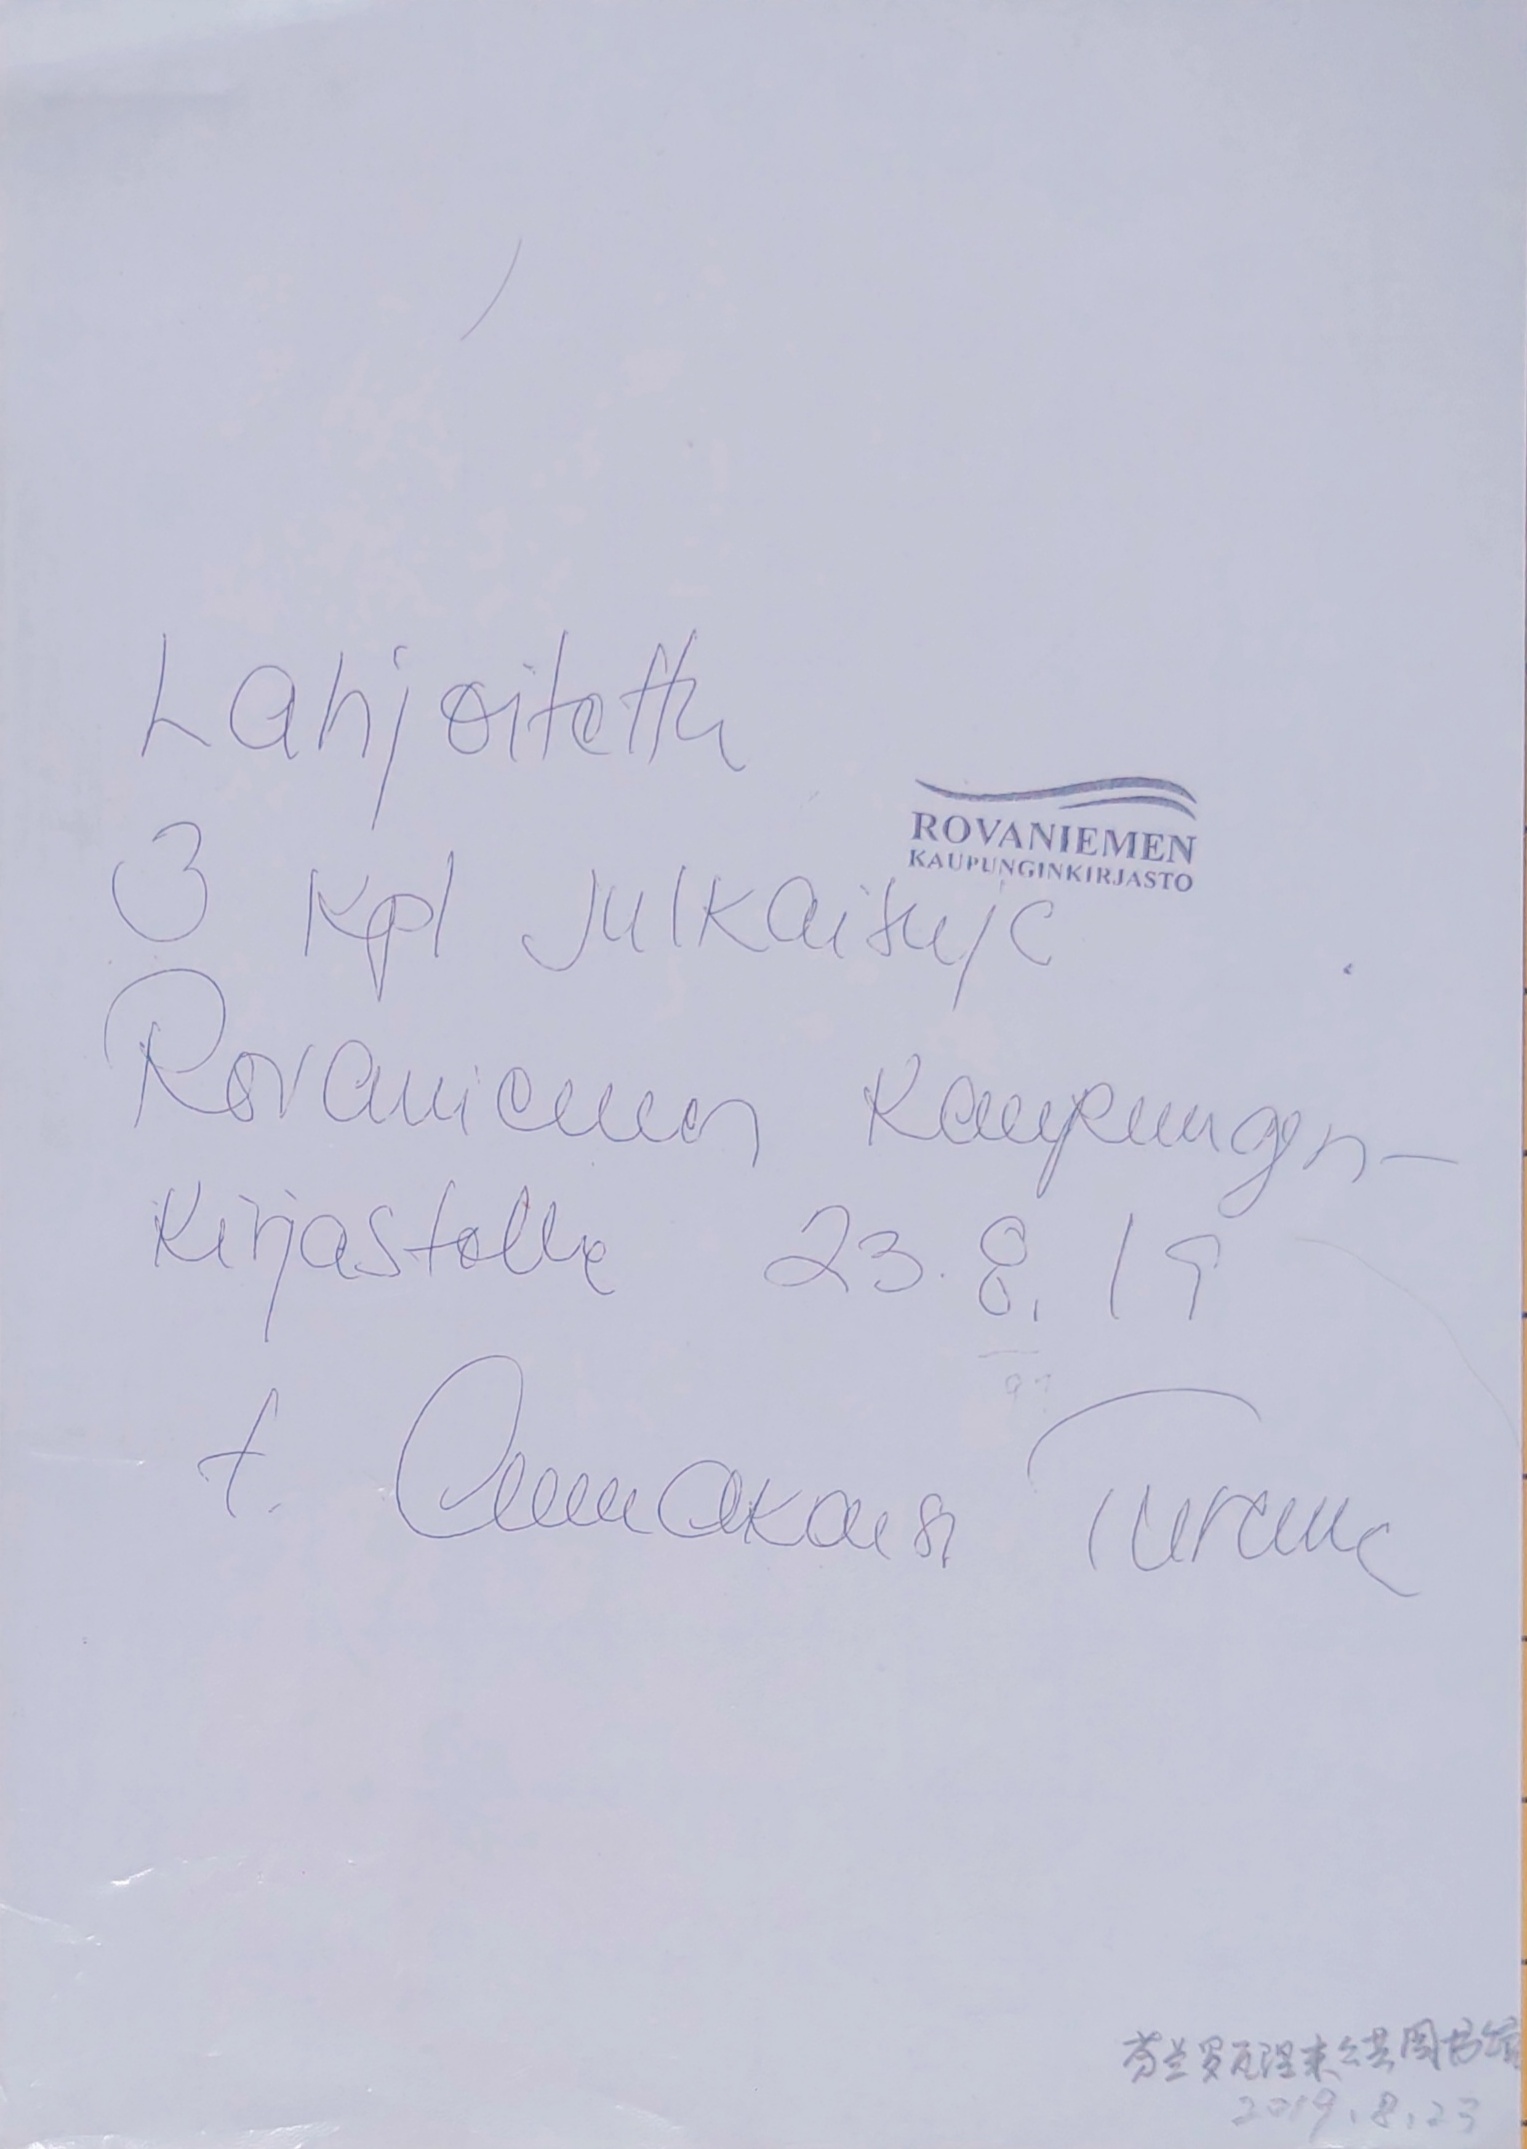 Lahjoitettu
ROVANIEMEN
KAUPUNGINKIRJASTO
3 kpl julkaisuja
Rovaniemen Kaupungin-
kirjastolle 23.8.19
t. Annakaisa
芬兰罗瓦涅米公共图书馆
2019.8.23